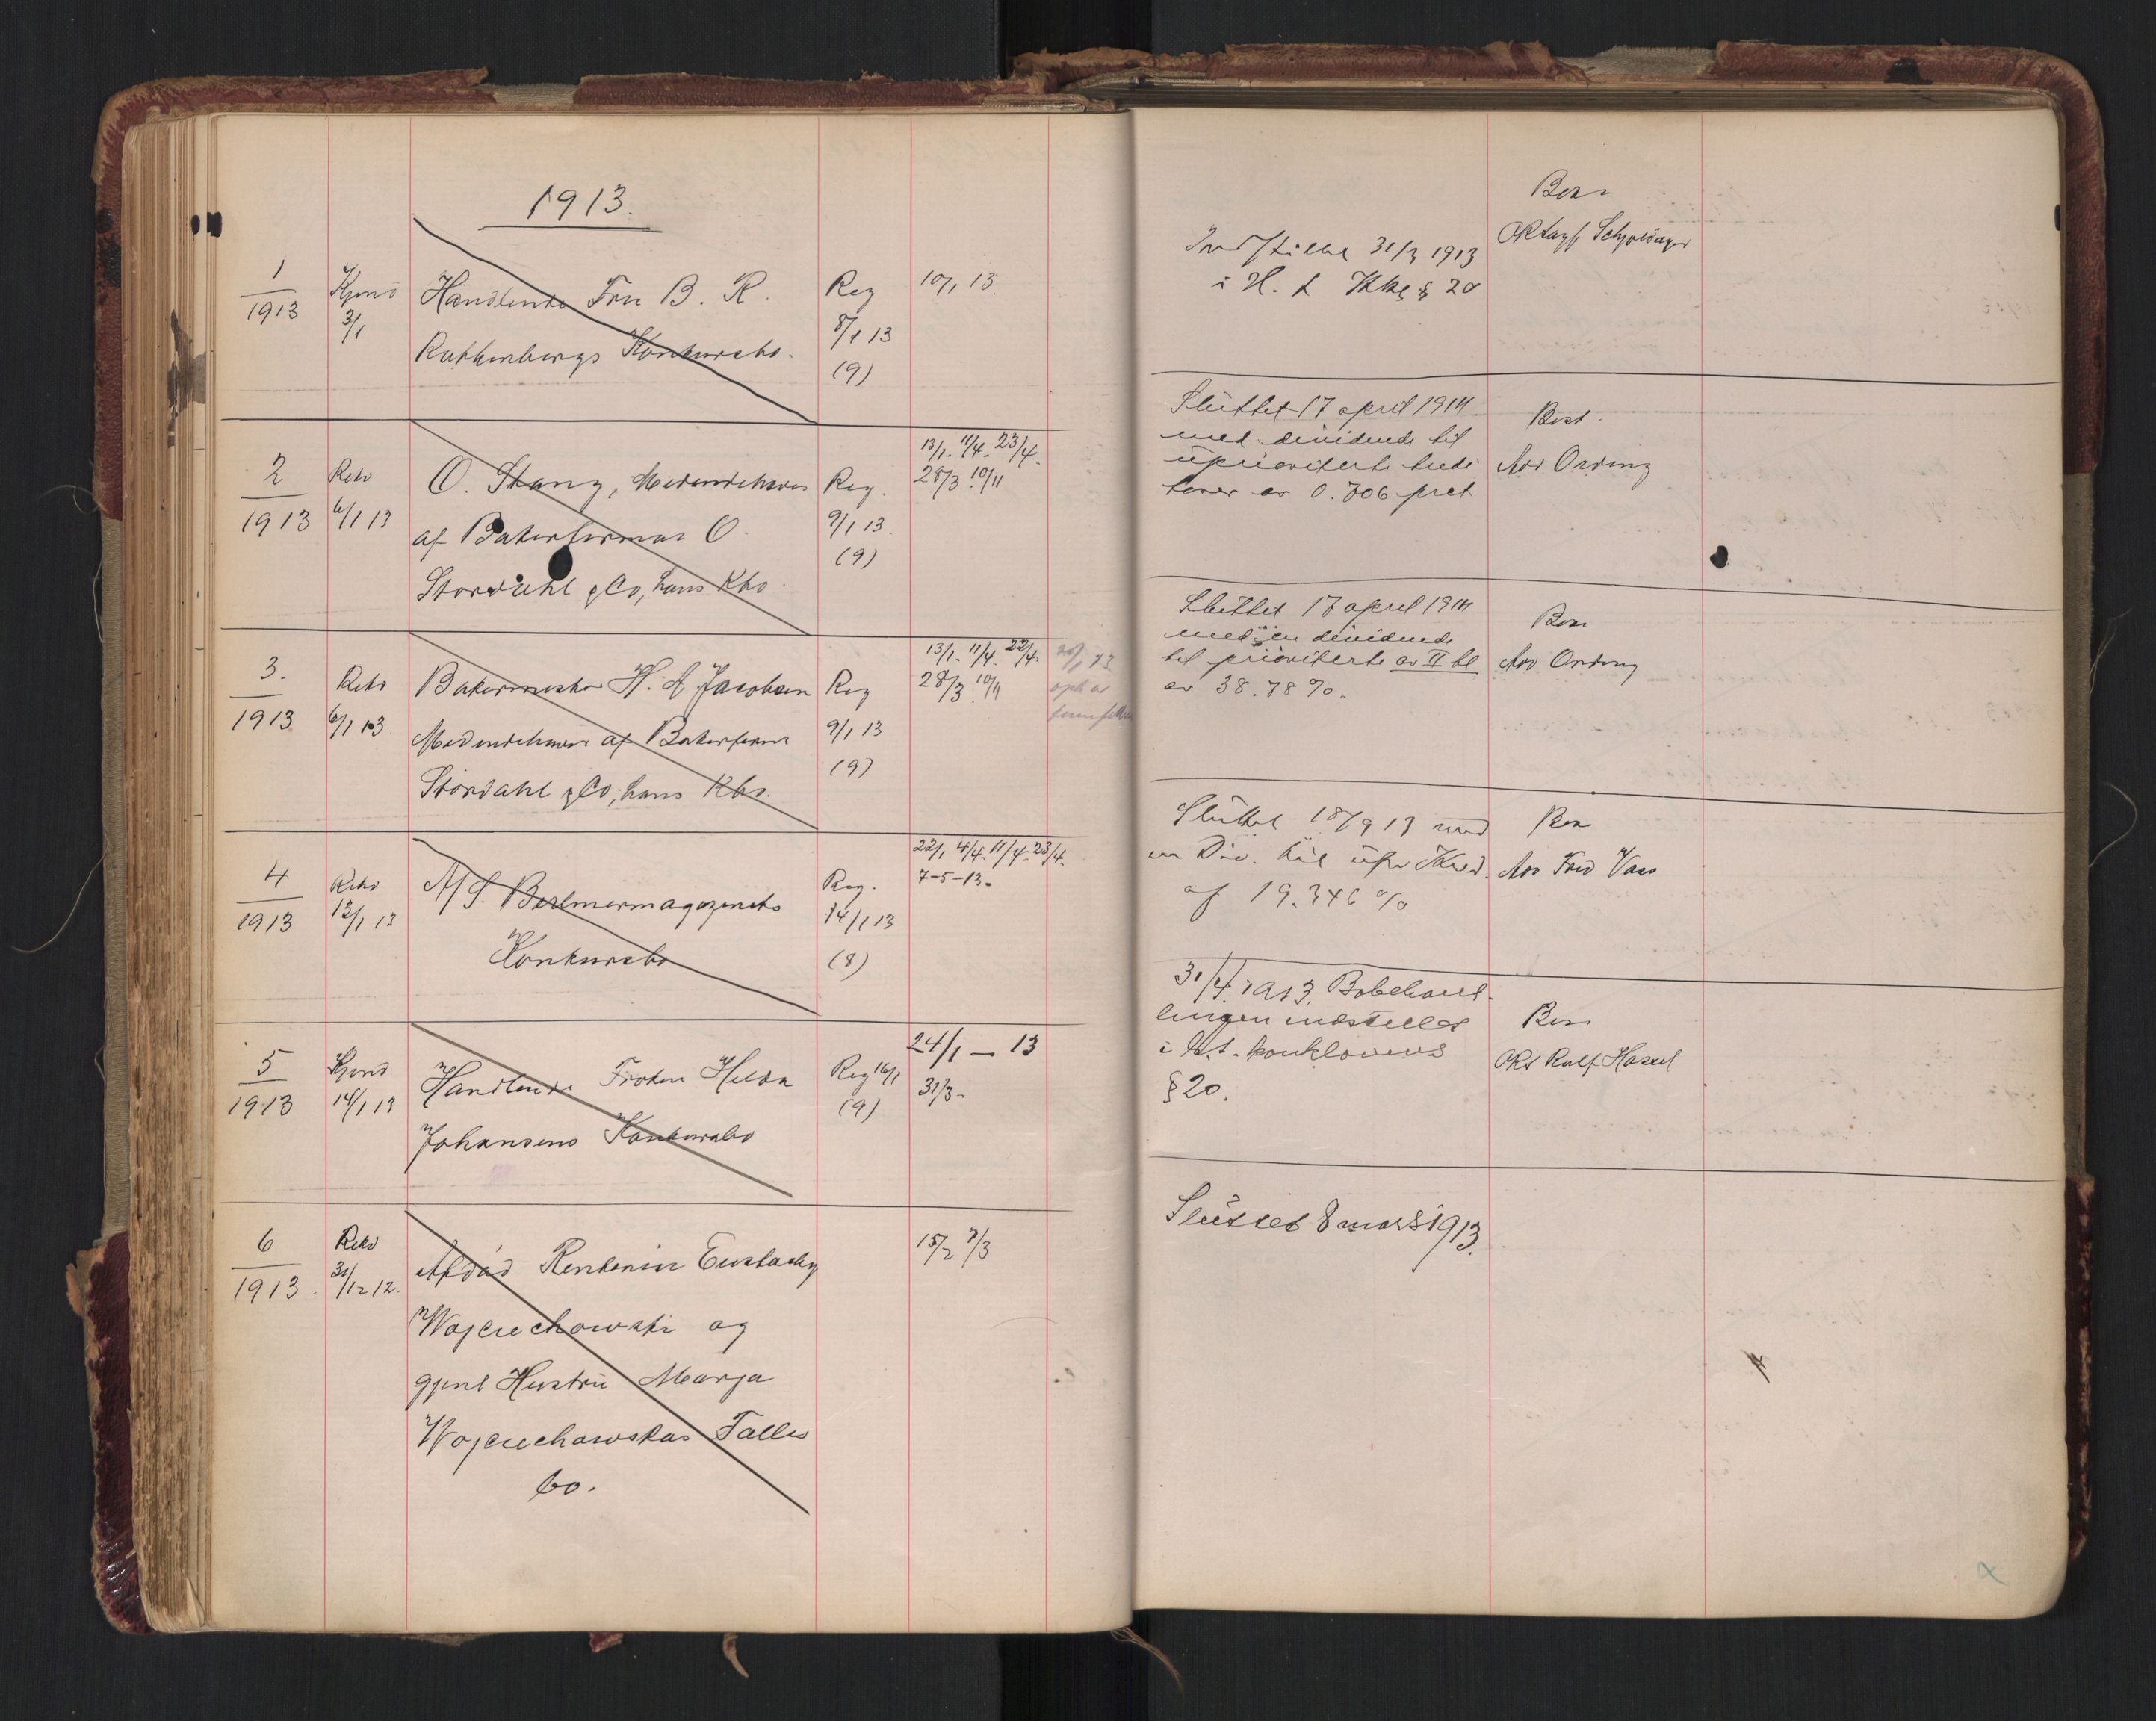 1913.
1
1913
Kjend
3/1
Handlende Fru B. R.
Ruthenbergs Konkursbo.
Reg
8/1 13
(9)
10/1 13.
Indstillet 31/3 1913
i H. t Kkl § 20
Best
2
1913
Rekv
6/1 13
O. Stang, Medindehaver
af Bakerfirmaet O.
Stordahl & Co, hans Kbo.
Reg.
9/1 13.
(9)
13/1. 11/4. 23/4.
28/3 10/11
Sluttet 17 april 1914
med dividende til
uprioriterte kredi
torer av 0.706 prct
Best.
Adv Ording
3.
1913
Rekv
6/1 13.
Bakermester H. A. Jacobsen
Medindehaver af Bakerfirma
Stordahl & Co, hans Kbo.
Reg
9/1 13
(9)
13/1. 11/4. 22/4.
28/3 10/11
Sluttet 17 april 1914
med en dividende
til prioriterte av II kl
av 38.78 %.
Best
Adv Ording
4
1913
Rekv
13/1 13
A/S. Berlinermagazinets
Konkursbo
Reg.
14/1 13
(8)
22/1 4/4. 11/4. 23/4.
7-5-13.
Sluttet 18/9 13 med
en Div. til upr Kred.
af 19.346 %
Best
Adv Fred Vaes
5
1913
Kjend
14/1 13
Handlende Frøken Helda
Johansens Konkursbo
Reg 16/1
(9)
24/1 – 13
31/3.
31/4. 1913. Bobehand-
lingen indstilles
i h.t. konklovens
§ 20.
Best
ORS Rolf Hasel
6
1913.
Rekv
31/12 12.
Afdød Rentenir Eustachy
Wojciechowski og
gjenl Hustru Marja
Wojciechowskas Fælles
bo.
15/2 7/3
Sluttet 8 mars 1913.